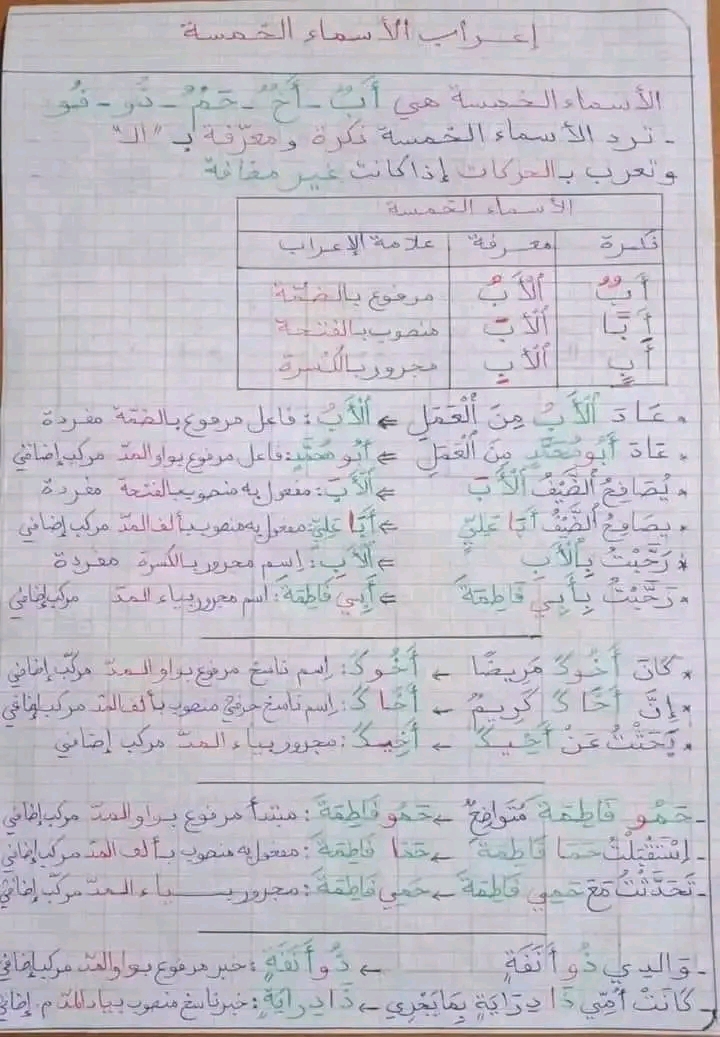 إعراب الأسماء الخمسة
الأسماء الخمسة هي أَبٌ - أَخٌ - حَمٌ - ذُو - فُو
- ترد الأسماء الخمسة نكرة ومعرّفة بـ "الـ"
وتعرب بالحركات إذا كانت غير مضافة
الأسماء الخمسة
نكرة معرفة علامة الإعراب
أَبٌ اَلْأَبُ مرفوع بالضمّة
أَبًا اَلْأَبَ منصوب بالفتحة
أَبٍ اَلْأَبِ مجرور بالكسرة
* عَادَ اَلْأَبُ مِنَ اَلْعَمَلِ ← اَلْأَبُ : فاعل مرفوع بالضمّة مفردة
* عَادَ أَبُو مُحَمَّدٍ مِنَ اَلْعَمَلِ ← أَبُو مُحَمَّدٍ : فاعل مرفوع بواو المدّ مركب إضافي
* يُصَافِحُ اَلضَّيْفُ اَلْأَبَ ← اَلْأَبَ : مفعول به منصوب بالفتحة مفردة
* يصَافِحُ اَلضَّيْفُ أَبَا عَلِيٍّ ← أَبَا عَلِيٍّ : مفعول به منصوب بألف المدّ مركب إضافي
* رَحَّبْتُ بِالْأَبِ ← اَلْأَبِ : اسم مجرور بالكسرة مفردة
* رَحَّبْتُ بِأَبِي فَاطِمَةَ ← أَبِي فَاطِمَةَ : اسم مجرور بياء المدّ مركب إضافي
* كَانَ أَخُوكَ مَرِيضًا ← أَخُوكَ : اِسم ناسخ مرفوع بواو المدّ مركّب إضافي
* إِنَّ أَخَاكَ كَرِيمٌ ← أَخَاكَ : اِسم ناسخ حرفي منصوب بألف المدّ مركب إضافي
* بَحَثْتُ عَنْ أَخِيكَ ← أَخِيكَ : مجرور بياء المدّ مركب إضافي
- حَمُو فَاطِمَةَ مُتَوَاضِعٌ ← حَمُو فَاطِمَةَ : مبتدأ مرفوع بواو المدّ مركب إضافي
- اِسْتَقْبَلْتُ حَمَا فَاطِمَةَ ← حَمَا فَاطِمَةَ : مفعول به منصوب بألف المدّ مركب إضافي
- تَحَدَّثْتُ مَعَ حَمِي فَاطِمَةَ ← حَمِي فَاطِمَةَ : مجرور بياء المدّ مركّب إضافي
- وَالِدِي ذُو أَنَفَةٍ ← ذُو أَنَفَةٍ : خبر مرفوع بواو المدّ مركب إضافي
- كَانَتْ أُمِّي ذَا دِرَايَةٍ بِمَا يَجْرِي ← ذَا دِرَايَةٍ : خبر ناسخ منصوب بياء المدّ م. إضافي